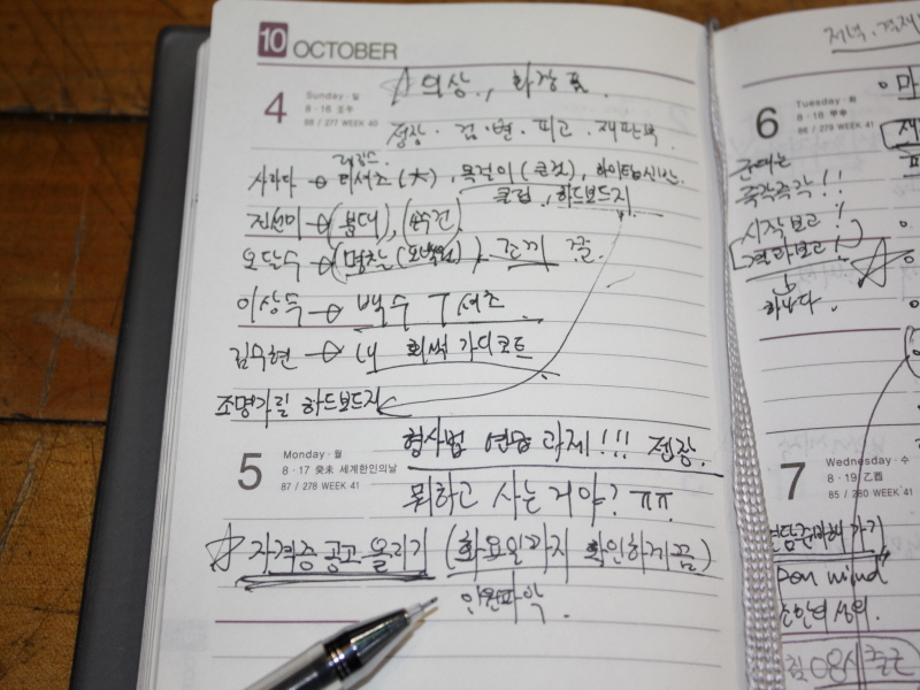 10 OCTOBER
4 Sunday · 일
8 · 16 壬午
88 / 277 WEEK 40
☆ 의상, 화장품.
정장 · 검 · 변 · 피고 · 재판복
사라다 → 티셔츠(大), 목걸이(큰것),
클럽, 하드보드지
진선미 → (붕대), (수건)
오달수 → (명찰(오박사)), 조끼
이상득 → 백수 T셔츠
김무현 → 내 회색 가디코트
조명가릴 하드보드지
5 Monday · 월
8 · 17 癸未 세계한인의날
87 / 278 WEEK 41
형사법 연습 과제!!! 젠장.
뭐하고 사는거야? ㅠㅠ.
☆ 자격증 공고 올리기 (화요일까지 확인하게끔)
인원파악.
6 Tuesday · 화
8 · 18 甲申
86 / 279 WEEK 41
군대는
즉각즉각!!
시작보고!
결과보고!
하나다.
7 Wednesday · 수
8 · 19 乙酉
85 / 280 WEEK 41
mind"